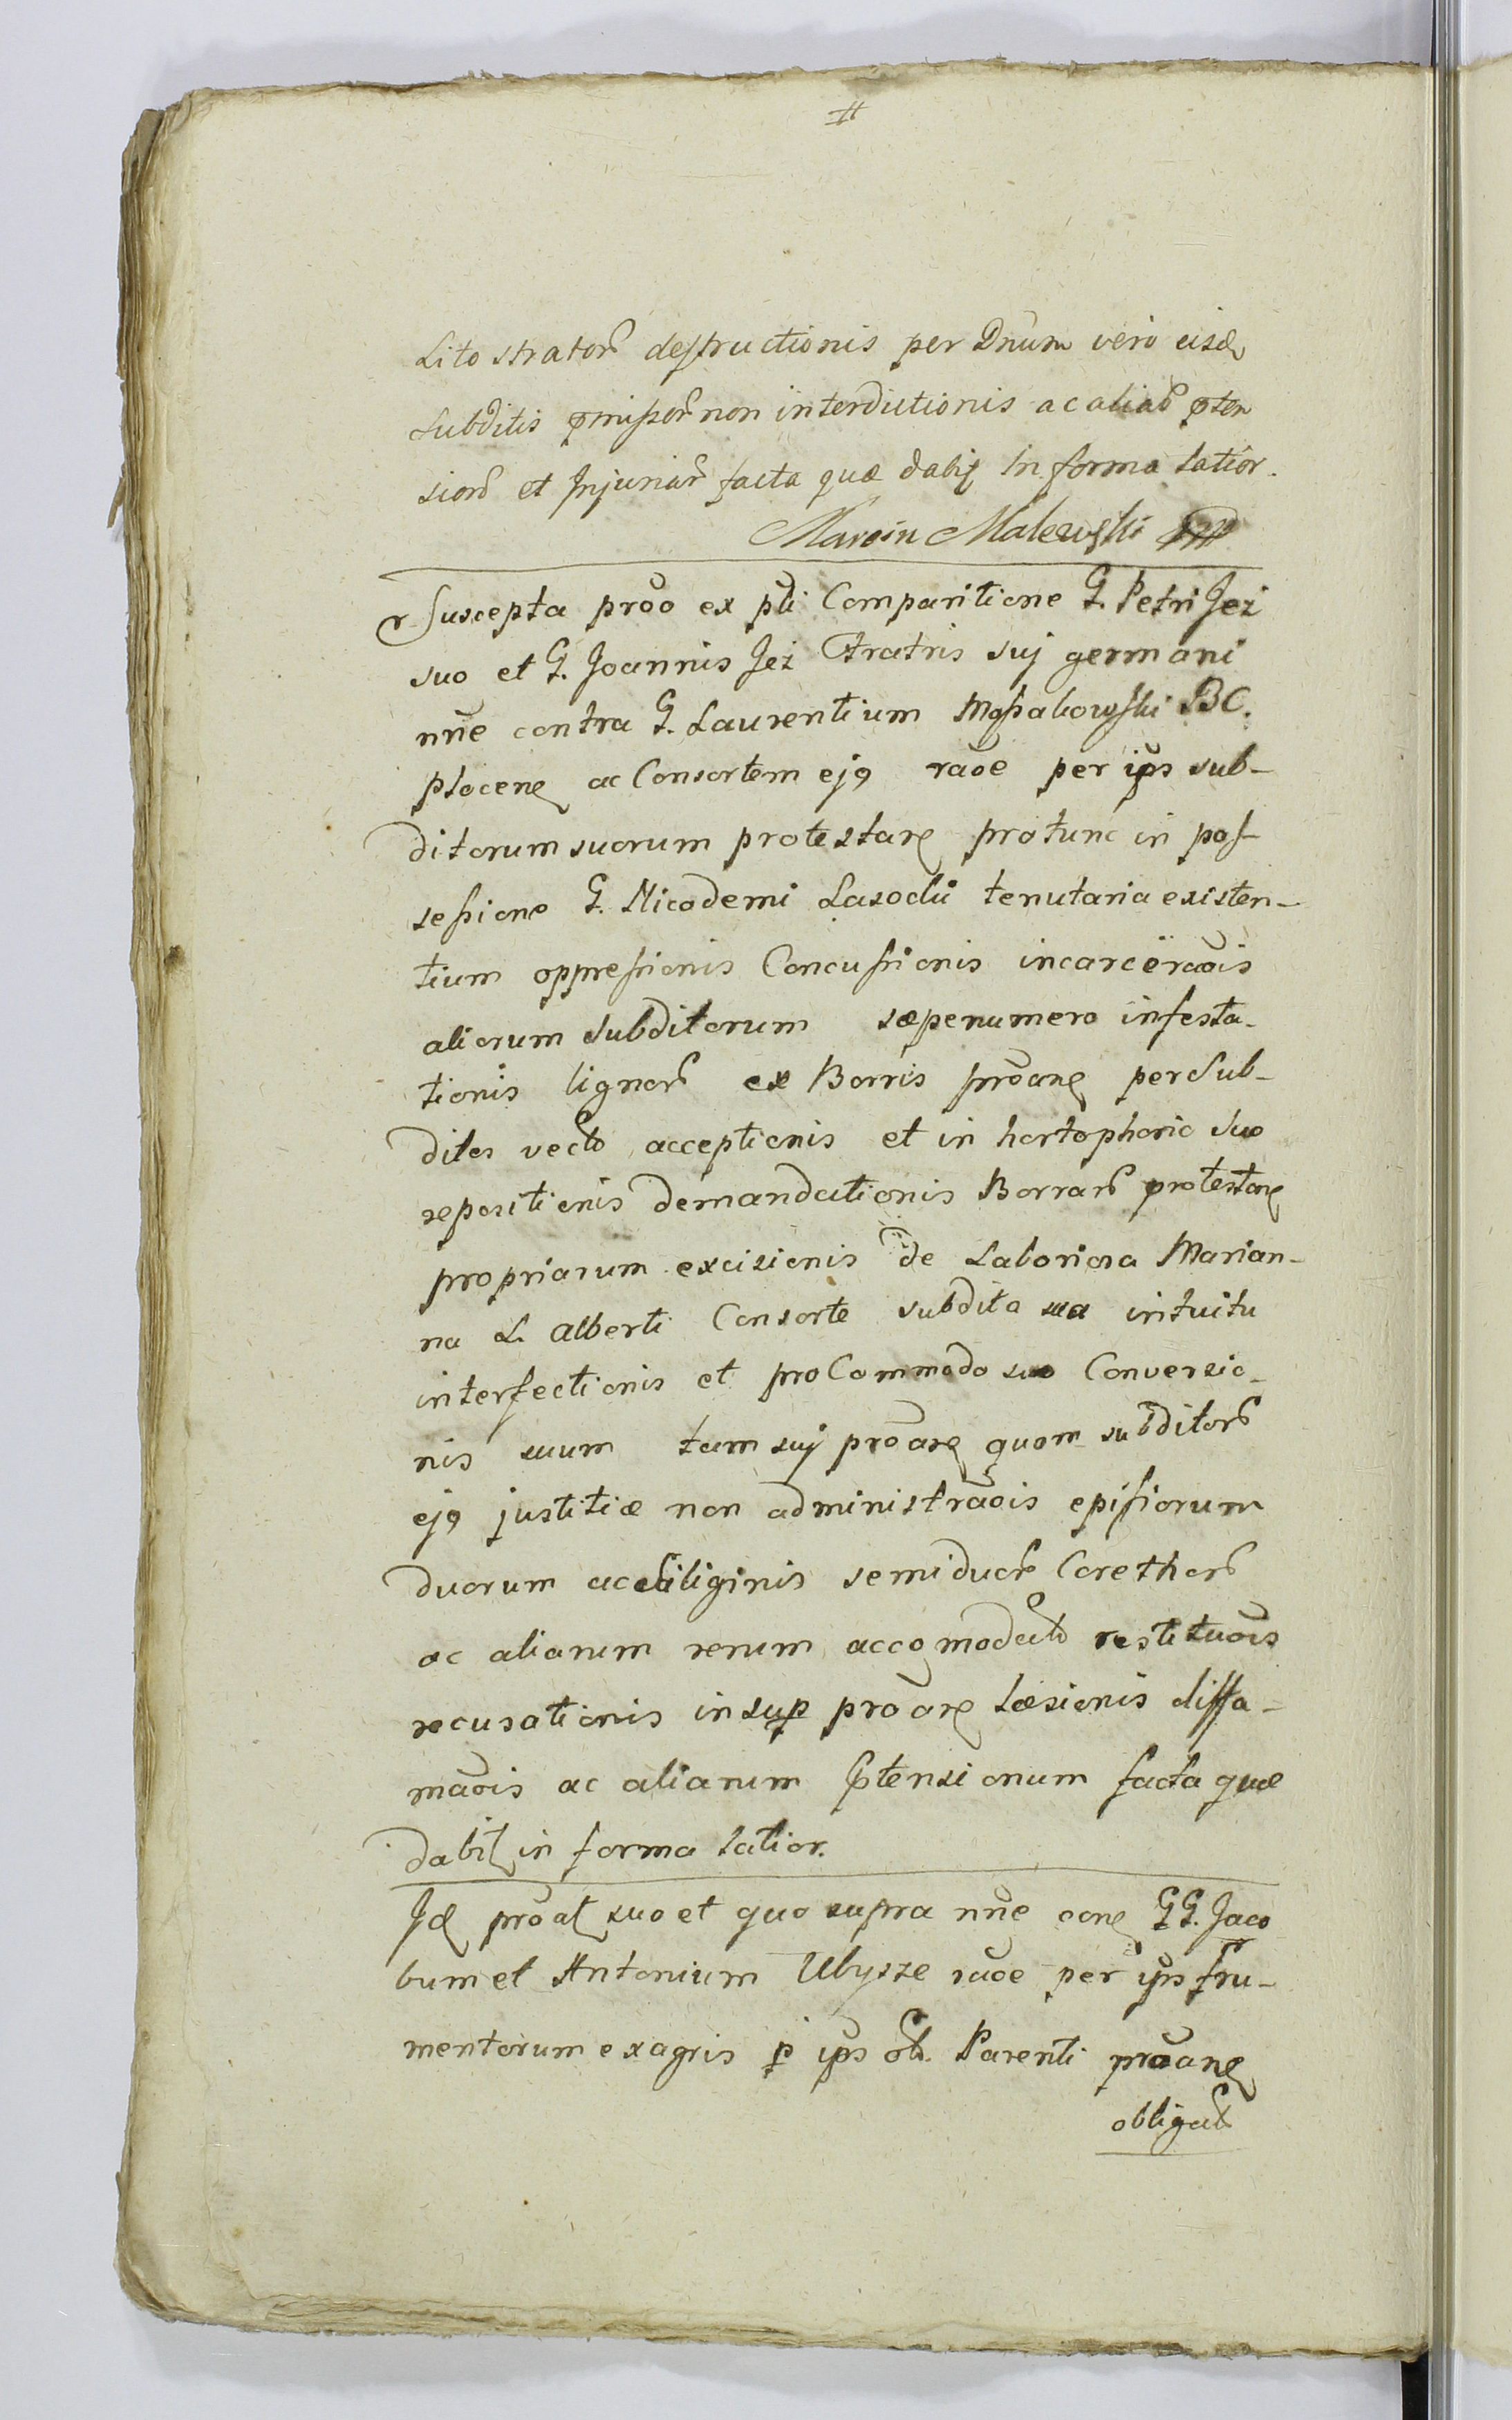 #
Litostrator̃ destructionis per Dnum vero eisd
subditis pmissor̃ non interdictionis ac aliar̃ pten
sior̃ et Injuriar̃ facta quæ dabit in forma latior.
Marcin Malewski mpp
r Suscepta proõ ex pñti Comparitione G. Petri Jez
suo et G. Joannis Jez Fratris suj germani
nñe contra G. Laurentium BC.
Plocen ac Consortem ej9 raõe per ip̃s sub-
ditorum suorum protestan protunc in pos-
sessione G. Nicodemi Lasocki tenutaria existen-
tium oppressionis Concussionis incarceraõis
aliorum subditorum sæpenumero infesta-
tionis lignor̃ ex Borris proõan per Sub-
ditos vecto acceptionis et in hortophorio suo
repositionis demandationis Borrar̃ protestan
propriarum excisionis de Laboriosa Marian-
na L. Alberti Consorte subdita sua intuitu
interfectionis et pro Commodo suo Conversio-
nis suum tam suj proõan quam subditor̃
ej9 justitiæ non administraõis episiorum
duorum ac siliginis semiduor̃ Corethor̃
ac aliarum rerum accomodat restituõis
recusationis insup proõan læsionis diffa-
maõis ac aliarum ptensionum facta quæ
dabit in forma latior.
Jd proãt suo et quo supra nñe con GG. Jaco
bum et Antonium Ulysze raõe per ip̃s fru-
mentorum ex agris p ip̃s olĩ Parenti proõan
obligat